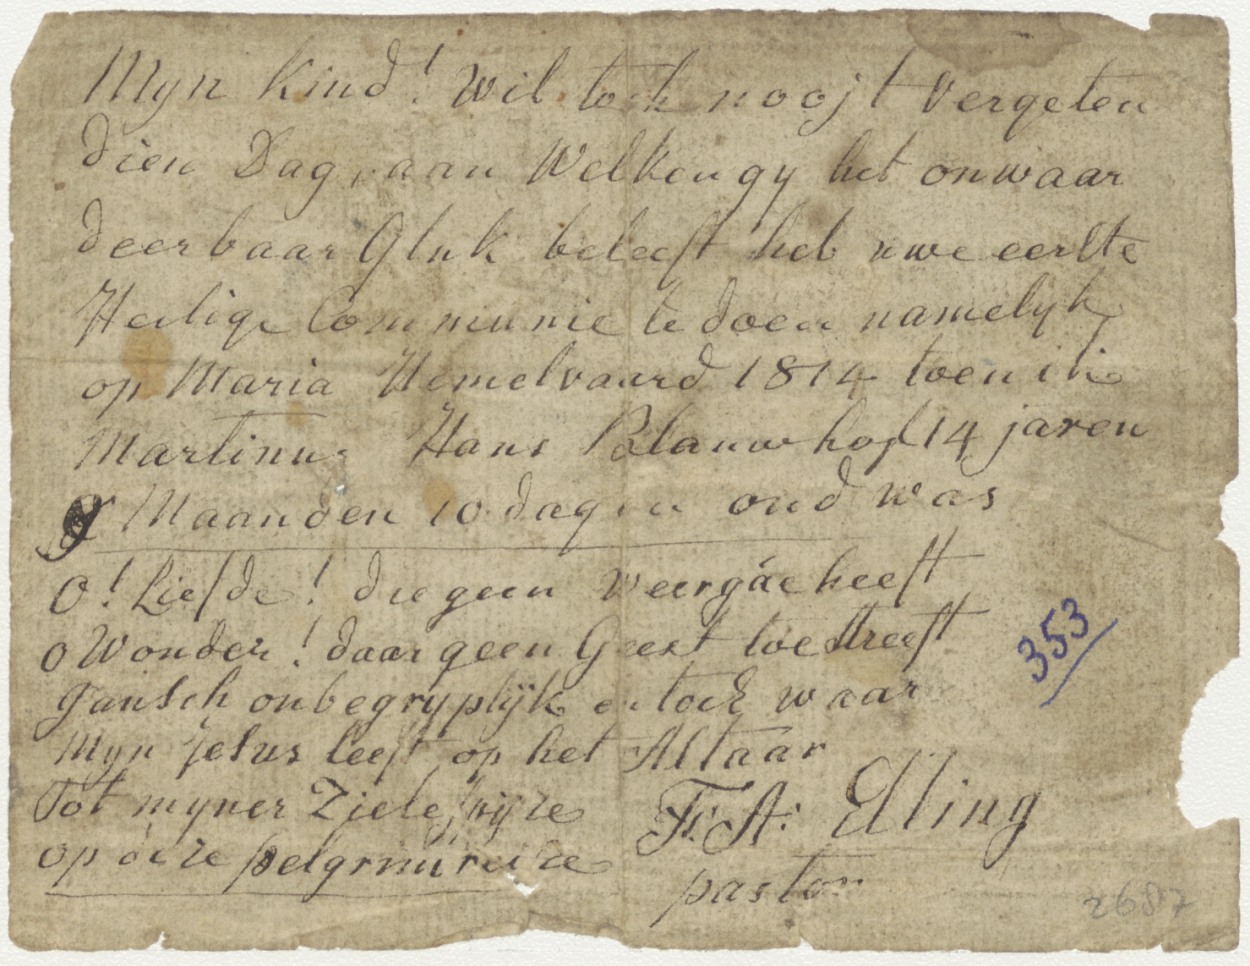 Myn Kind! Wil toch noojt vergeten
dien Dag, aan Welken gy het onwaar
deerbaar Gluk beleeft heb uwe eerste
Heilige Communie te doen namelyk
op Maria Hemelvaard 1814 toen ik
Martinus Hans Blauwhof 14 jaren
9 Maanden 10 dagen oud was
O! Liefde! die geen weergáe heeft
O Wonder! daar geen Geest toe streeft
gansch onbegryplijk en toch waar
Myn Jesus leeft op het Altaar
Tot myner Ziele spijze
op deze pelgrimreize
F: A: Elling
pastor
353
2687